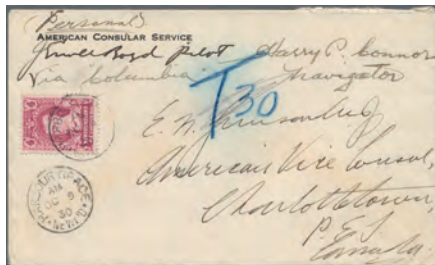 Personal
AMERICAN CONSULAR SERVICE
Boyd pilot Harry P. Connor
Via Columbia Navigator
T30
E. W.
American Vice Consul,
Charlottetown,
P. E. I.
Canada.
HARBOUR GRACE
AM
30
NEWF'D